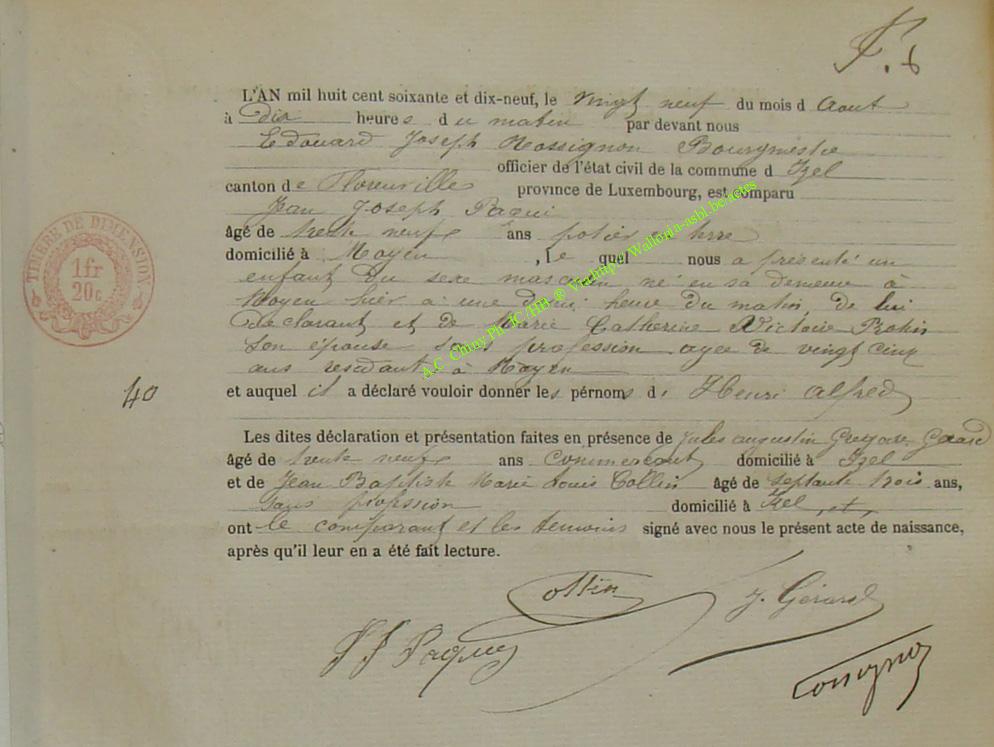 F. 6
L'AN mil huit cent soixante et dix-neuf, le vingt neuf du mois d Aout
à dix heures du matin par devant nous
Edouard Joseph Rossignon Bourgmestre
officier de l'état civil de la commune d Izel
canton de Florenville province de Luxembourg, est comparu
Jean Joseph Paqui
âgé de trente neuf ans potier en terre
domicilié à Moyen , le quel nous a présenté un
enfant du sexe masculin né en sa demeure à
Moyen hier à une demi heure du matin, de lui
déclarant et de Marie Catherine Victoire
son épouse sans profession agée de vingt cinq
ans résidant à Moyen
40
et auquel il a déclaré vouloir donner les pérnoms d. Henri Alfred
Les dites déclaration et présentation faites en présence de Jules augustin Gregoire Gerard
âgé de trente neuf ans Commercant domicilié à Izel
et de Jean Baptiste Marie Louis Collin âgé de septante trois ans,
sans profession domicilié à Izel, et,
ont le comparant et les temoins signé avec nous le présent acte de naissance,
après qu'il leur en a été fait lecture.
Collin J. Gérard
J J Paqui
Rossignon
TIMBRE DE DIMENSION
1fr
20c
A.C Chiny Ph. JC /HB ® Verchtipe / Wallonia-asbl.be/actes